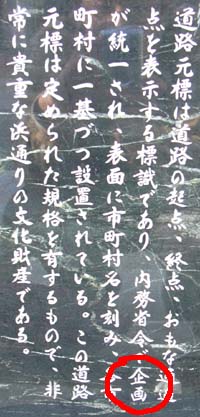 道路元標は道路の起点、終点、おもな
点を表示する標識であり、内務省令で企画
が統一され、表面に市町村名を刻み一
町村に一基づつ設置されている。この道路
元標は定められた規格を有するもので、非
常に貴重な浜通りの文化財産である。